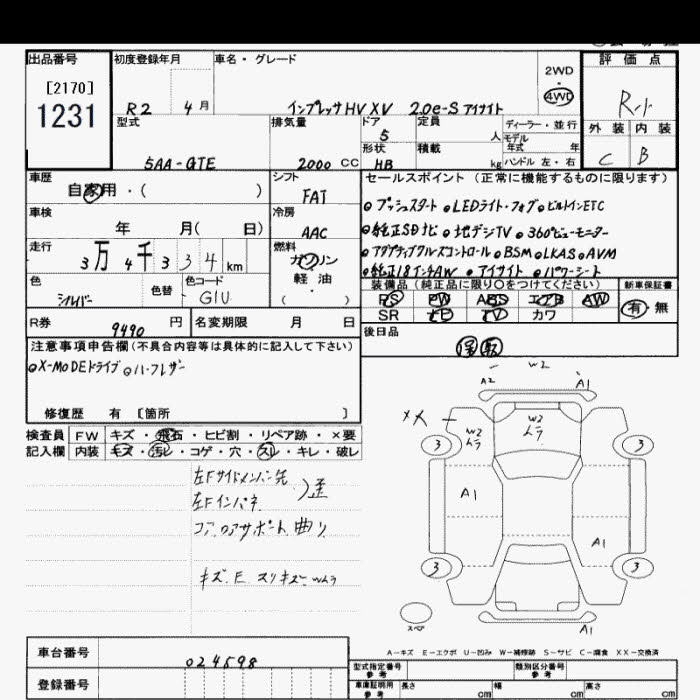 出品番号 初度登録年月 車名・グレード 2WD 4WD 評価点
[2170]
1231
R2 4月 インプレッサHV XV 2.0e-S アイサイト
型式 排気量 ドア 定員 人 ディーラー・並行 外装 内装
5 モデル年式 年
5AA-GTE 2000 CC 形状 HB 積載 kg ハンドル 左・右 C B
車歴 シフト セールスポイント (正常に機能するものに限ります)
自家用・( ) FAT
●プッシュスタート ●LEDライト・フォグ ●ビルトインETC
車検 冷房
年 月( 日) AAC
●純正SDナビ ●地デジTV ●360°ビューモニター
走行 燃料
3万4千334km ガソリン
●アダプティブクルーズコントロール ●BSM ●LKAS ●AVM
色 色替 色コード 軽油
シルバー G1U ・( )
●純正18インチAW ●アイサイト ●パワーシート
装備品 (純正品に限り○をつけてください) 新車保証書
PS PW ABS エアB AW 有 無
R券 9490 円 名変期限 月 日
SR ナビ TV カワ
後日品
注意事項申告欄(不具合内容等は具体的に記入して下さい)
●X-MODEドライブ
修復歴 有 [箇所 ]
検査員 FW キズ・飛石・ヒビ割・リペア跡・×要
記入欄 内装 キズ・汚レ・コゲ・穴・スレ・キレ・破レ
左Fサイドメンバー先
左Fインパネ
歪
コアロアサポート 曲り
キズ.E スリキズ
W2
A2 A1
W2
W2
3 3
A1
A1
3 3
スペア A1
A−キズ E−エクボ U−凹み W−補修跡 S−サビ C−腐食 XX−交換済
車台番号 024598
型式指定番号 参考 類別区分番号 参考
登録番号
車庫証明用 参考 長さ cm 幅 cm 高さ cm